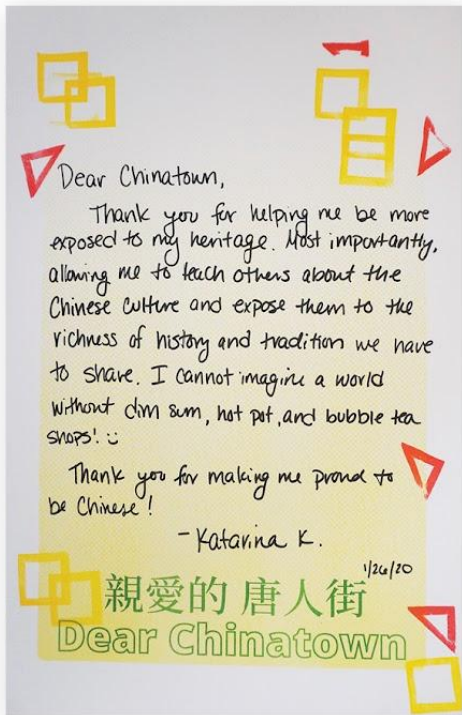 Dear Chinatown,
Thank you for helping me be more
exposed to my heritage. Most importantly,
allowing me to teach others about the
Chinese culture and expose them to the
richness of history and tradition we have
to share. I cannot imagine a world
without dim sum, hot pot, and bubble tea
shops! :)
Thank you for making me proud to
be Chinese!
- Katarina K.
1/26/20
親愛的 唐人街
Dear Chinatown